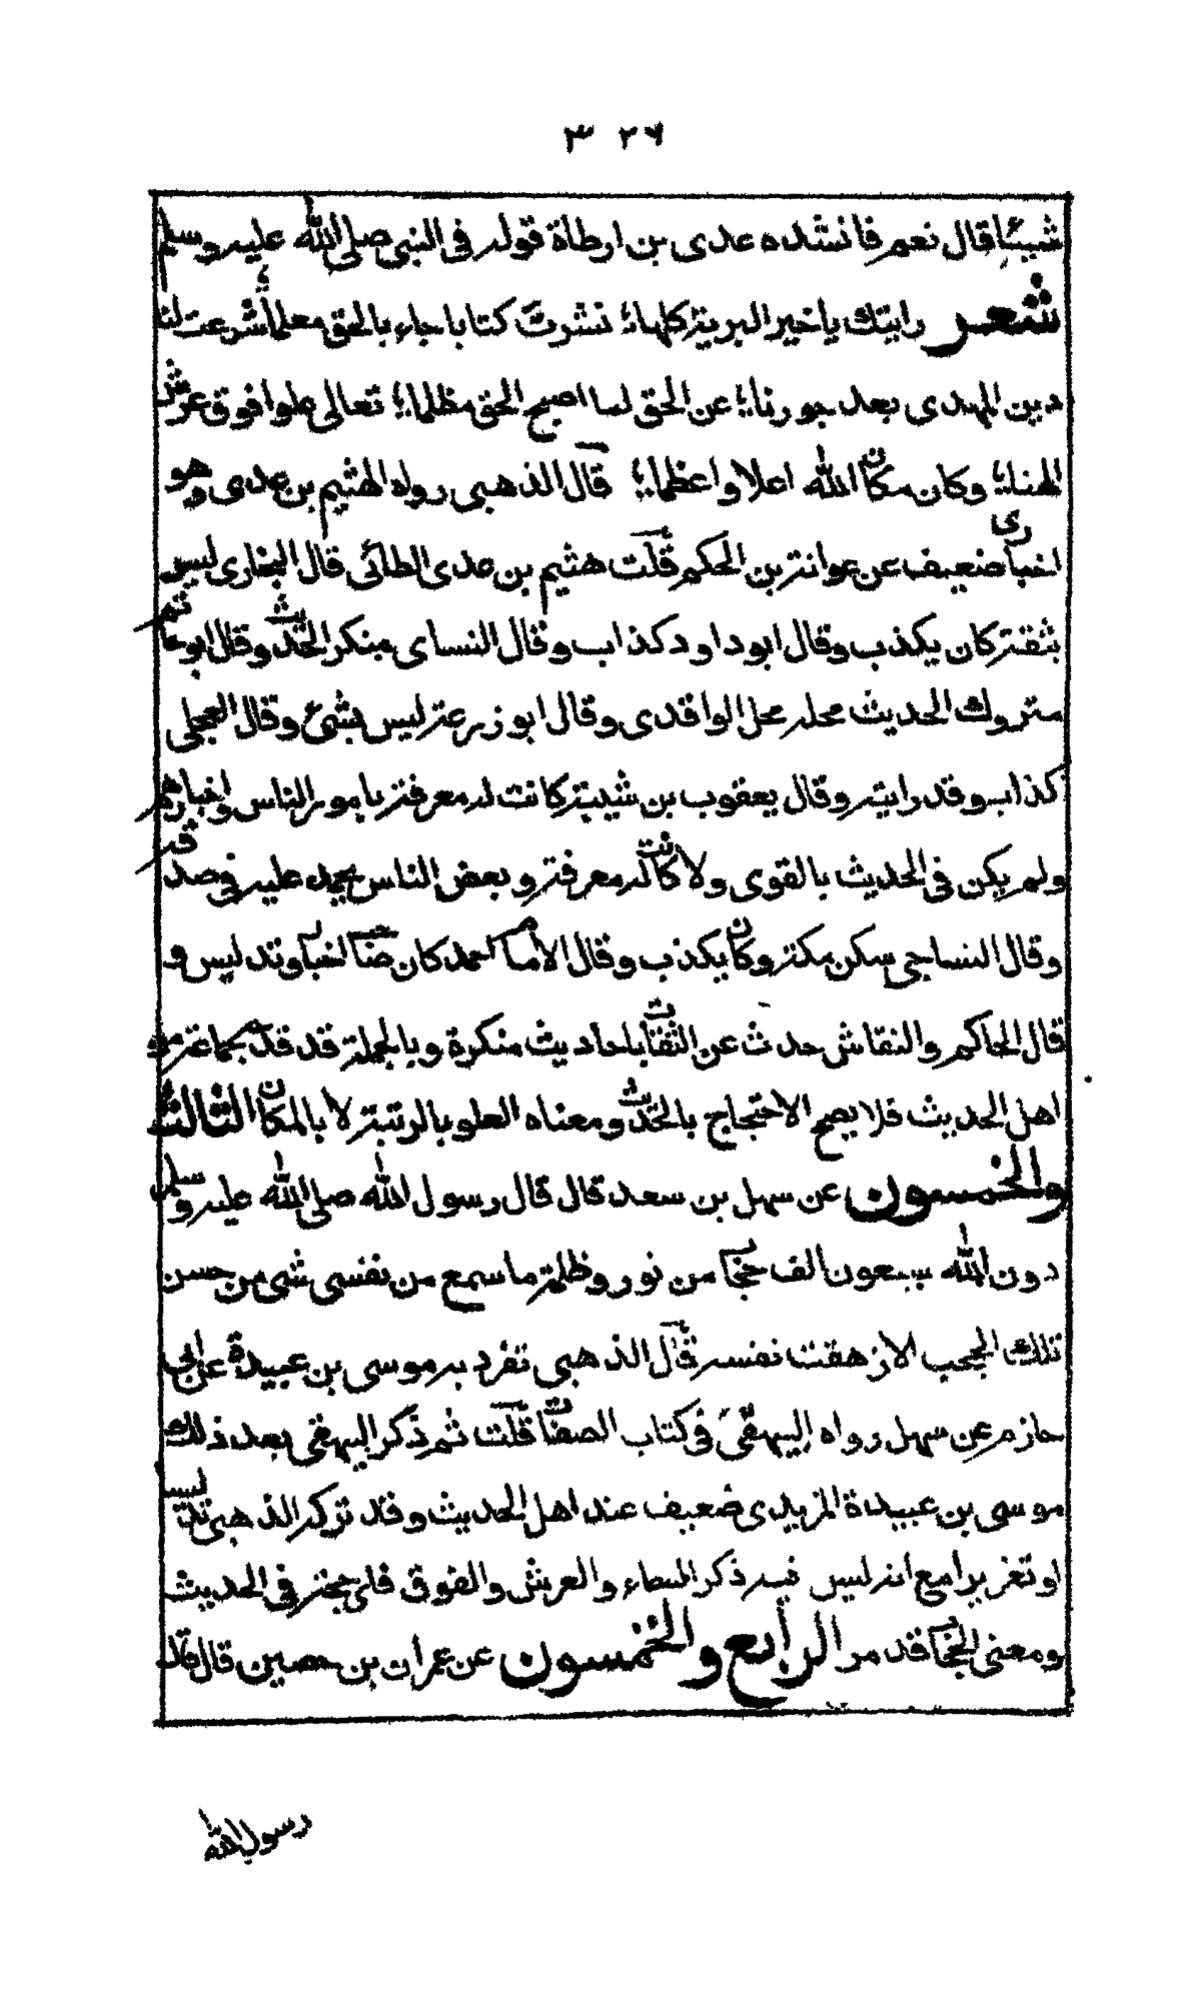 ٣٢٦
شيئا قال نعم فانشده عدى بن ارطاة قوله فى النبى صلى الله عليه وسلم
شعر رايتك ياخير البرية كلها؛ نشرت كتابا جاء بالحق معلما؛ شرعت لنا
دين الهدى بعد جورنا؛ عن الحق لما اصبح الحق مظلما؛ تعالى علوا فوق عرش
الهنا؛ وكان مكان الله اعلا واعظما؛ قال الذهبى رواه الهثيم بن عدى وهو
اخبارى ضعيف عن عوانة بن الحكم قلت هثيم بن عدى الطائى قال البخارى ليس
بثقة كان يكذب وقال ابو داود كذاب وقال النساى منكر الحديث وقال ابو حاتم
متروك الحديث محله محل الواقدى وقال ابو زرعة ليس بشئ وقال العجلى
كذاب وقد رايته وقال يعقوب بن شيبة كانت له معرفة بامور الناس واخبارهم
ولم يكن فى الحديث بالقوى ولا كانت له معرفة وبعض الناس يحمد عليه فى صدقه
وقال الساجى سكن مكة وكان يكذب وقال الامام احمد كان صاحب اخبار وتدليس و
قال الحاكم والنقاش حدث عن الثقات باحاديث منكرة وبالجملة قد قدحه جماعة من
اهل الحديث فلا يصح الاحتجاج بالحديث ومعناه العلو بالرتبة لا بالمكان الثالث
والخمسون عن سهل بن سعد قال قال رسول الله صلى الله عليه وسلم
دون الله سبعون الف حجاب من نور وظلمة ما سمع من نفسى شى من حسن
تلك الحجب الا زهقت نفسه قال الذهبى تفرد به موسى بن عبيدة عن ابى
حازم عن سهل رواه البيهقى فى كتاب الصفات قلت ثم ذكر البيهقى بعد ذلك
موسى بن عبيدة الربذى ضعيف عند اهل الحديث وقد تركه الذهبى تدليسا
او تغريرا مع انه ليس فيه ذكر السماء والعرش والفوق فاى حجة فى الحديث
ومعنى الحجاب قد مر الرابع والخمسون عن عمران بن حصين قال قال
رسول الله